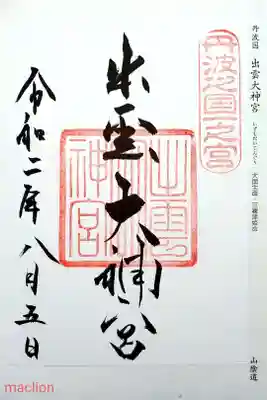 丹波国 出雲大神宮 いずもだいじんぐう 大国主命・三穂津姫命 山陰道
出雲大神宮
令和二年八月五日
maclion